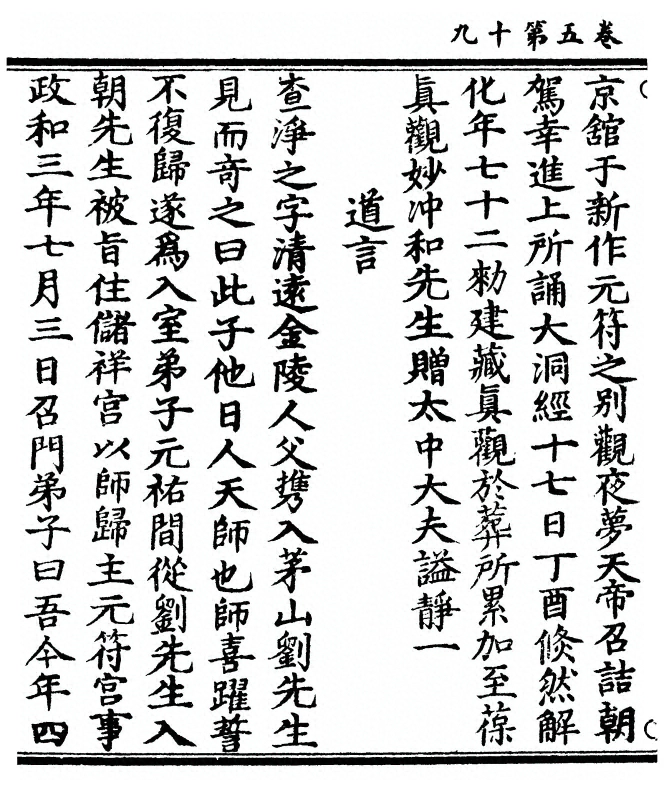 卷五第十九
京舘于新作元符之别觀夜夢天帝召詰朝
駕幸進上所誦大洞經十七日丁酉倐然解
化年七十二勑建藏眞觀於葬所累加至葆
眞觀妙冲和先生贈太中大夫謚靜一
道言
查淨之字清遠金陵人父携入茅山劉先生
見而竒之曰此子他日人天師也師喜躍誓
不復歸遂爲入室弟子元祐間從劉先生入
朝先生被旨住儲祥宫以師歸主元符宫事
政和三年七月三日召門弟子曰吾今年四